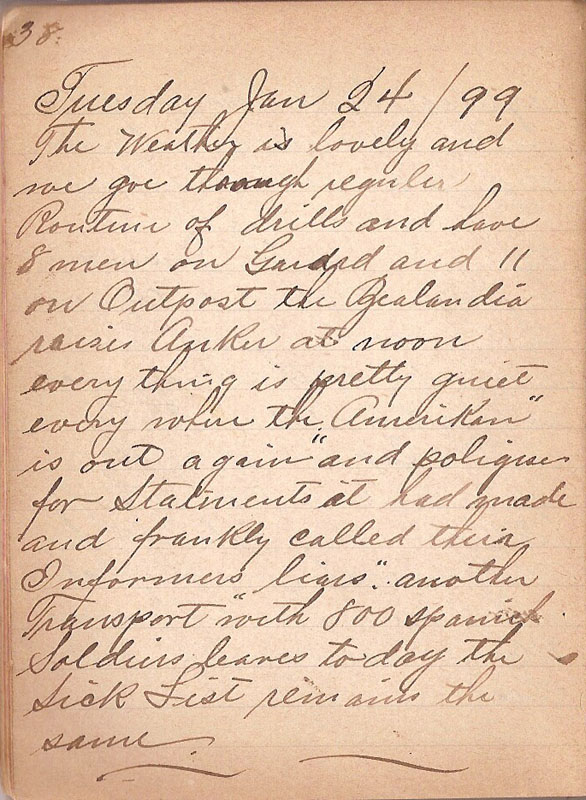 38.
Tuesday Jan 24/99
The Weather is lovely and
we goe through reguler
Routine of drills and have
8 men on Guard and 11
on Outpost the Zealandia
raises Anker at noon
every thing is pretty quiet
every where the "Amerikan"
is out again "and poligises
for Statments it had made
and frankly called their
Informers liars". another
Transport "with 800 spanich
Soldiers leaves to day the
Sick List remains the
same